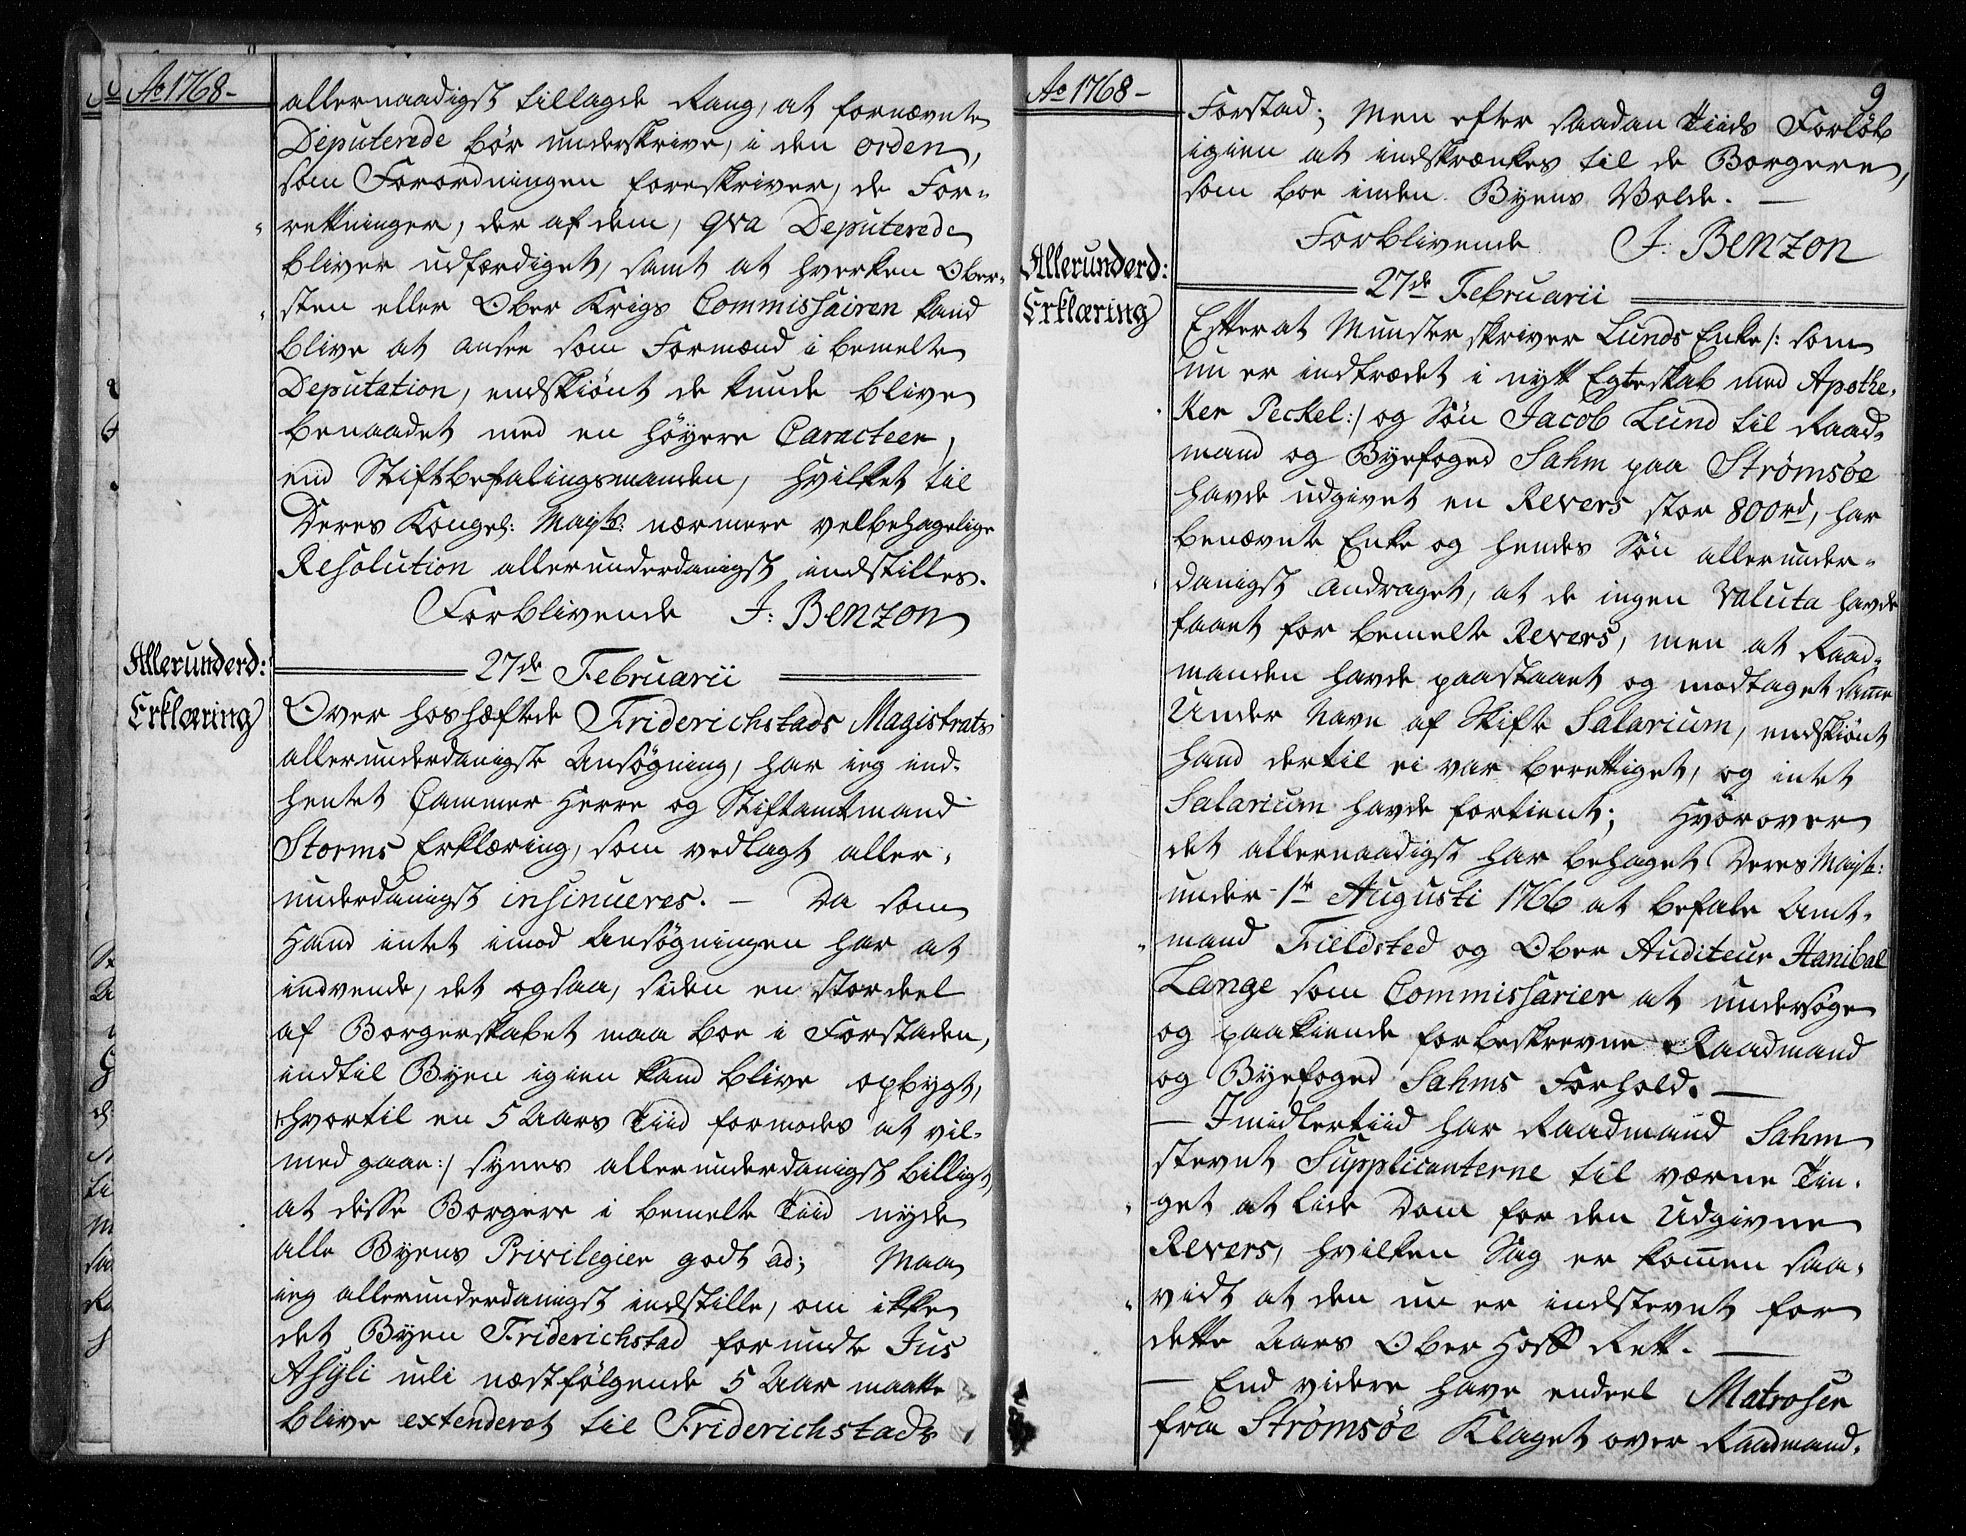 Ao 1768 -
allernaadigst tillagde Rang, at fornævnte
Deputerede bør underskrive, i den orden,
som Forordningen foreskriver, de For-
rettninger, der af dem, qva Deputerede
bliver udfærdiget, samt at hverken Ober-
sten eller Ober Krigs Commissairen kand
blive at ansee som Formænd i bemelte
Deputation, endskiönt de kunde blive
benaadet med en høyere Caracteer,
end Stiftbefalingsmanden, hvilket til
Deres Kongel: Mayts: nærmere velbehagelige
Resolution allerunderdanigst indstilles.
Forblivende J: Benzon
Allerunderd:
Erklæring
27de Februarii
Over hoshæftede Friderichstads Magistrats
allerunderdanigste Ansøgning, har ieg ind-
hentet Cammer Herre og Stiftamtmand
Storms Erklæring, som vedlagt aller-
underdanigst insinueres. - Da som
Hand intet imod Ansøgningen har at
indvende, det ogsaa, siden en stor deel
af Borgerskabet maa boe i Forstaden,
indtil Byen igien kand blive opbygt,
/:hvortil en 5 Aars Tiid formodes at vil
medgaae:/ synes allerunderdanigst billigt,
at disse Borgere i bemelte Tiid nyde
alle Byens Privilegier godt ad; Maa
ieg allerunderdanigst indstille, om ikke
det Byen Friderichstad forundte Jus
Asyli udi næstfølgende 5 Aar maatte
blive extenderet til Friderichstads
Ao 1768 -
9
Forstad; Men efter saadan Tiids Forløb
igien at indskrænkes til de Borgere,
som boe inden Byens Volde. -
Forblivende J: Benzon
Allerunderd:
Erklæring
27de Februarii
Efterat Munsterskriver Lunds Enke /: som
nu er indtrædet i nytt Egteskab med Apothe-
ker Peckel:/ og Søn Jacob Lund til Raad-
mand og Byefoged Sahm paa Strømsøe
havde udgivet en Revers stor 800 rd, har
benævnte Enke og hendes Søn allerunder-
danigst andraget, at de ingen Valuta havde
faaet for bemelte Revers, men at Raad-
manden havde paastaaet og modtaget samme
Under Navn af Skifte Salarium, endskiönt
hand dertil ei var berettiget, og intet
Salarium havde fortient; Hvorover
det allernaadigst har behaget Deres Mayts:
under 1te Augusti 1766 at befale Amt-
mand Fieldsted og Ober Auditeur Hanibal
Lange som Commissarier at undersøge
og paakiende forbeskrevne Raadmand
og Byefoged Sahms Forhold. -
- Imidlertiid har Raadmand Sahm
stevnt Supplicanterne til værne Tin-
get at lide Dom for den udgivne
Revers, hvilken Sag er kommen saa-
vidt at den nu er indstevnt for
dette Aars Ober Hoff Rett. -
- End videre have endeel Matroser
fra Strømsøe Klaget over Raadmand